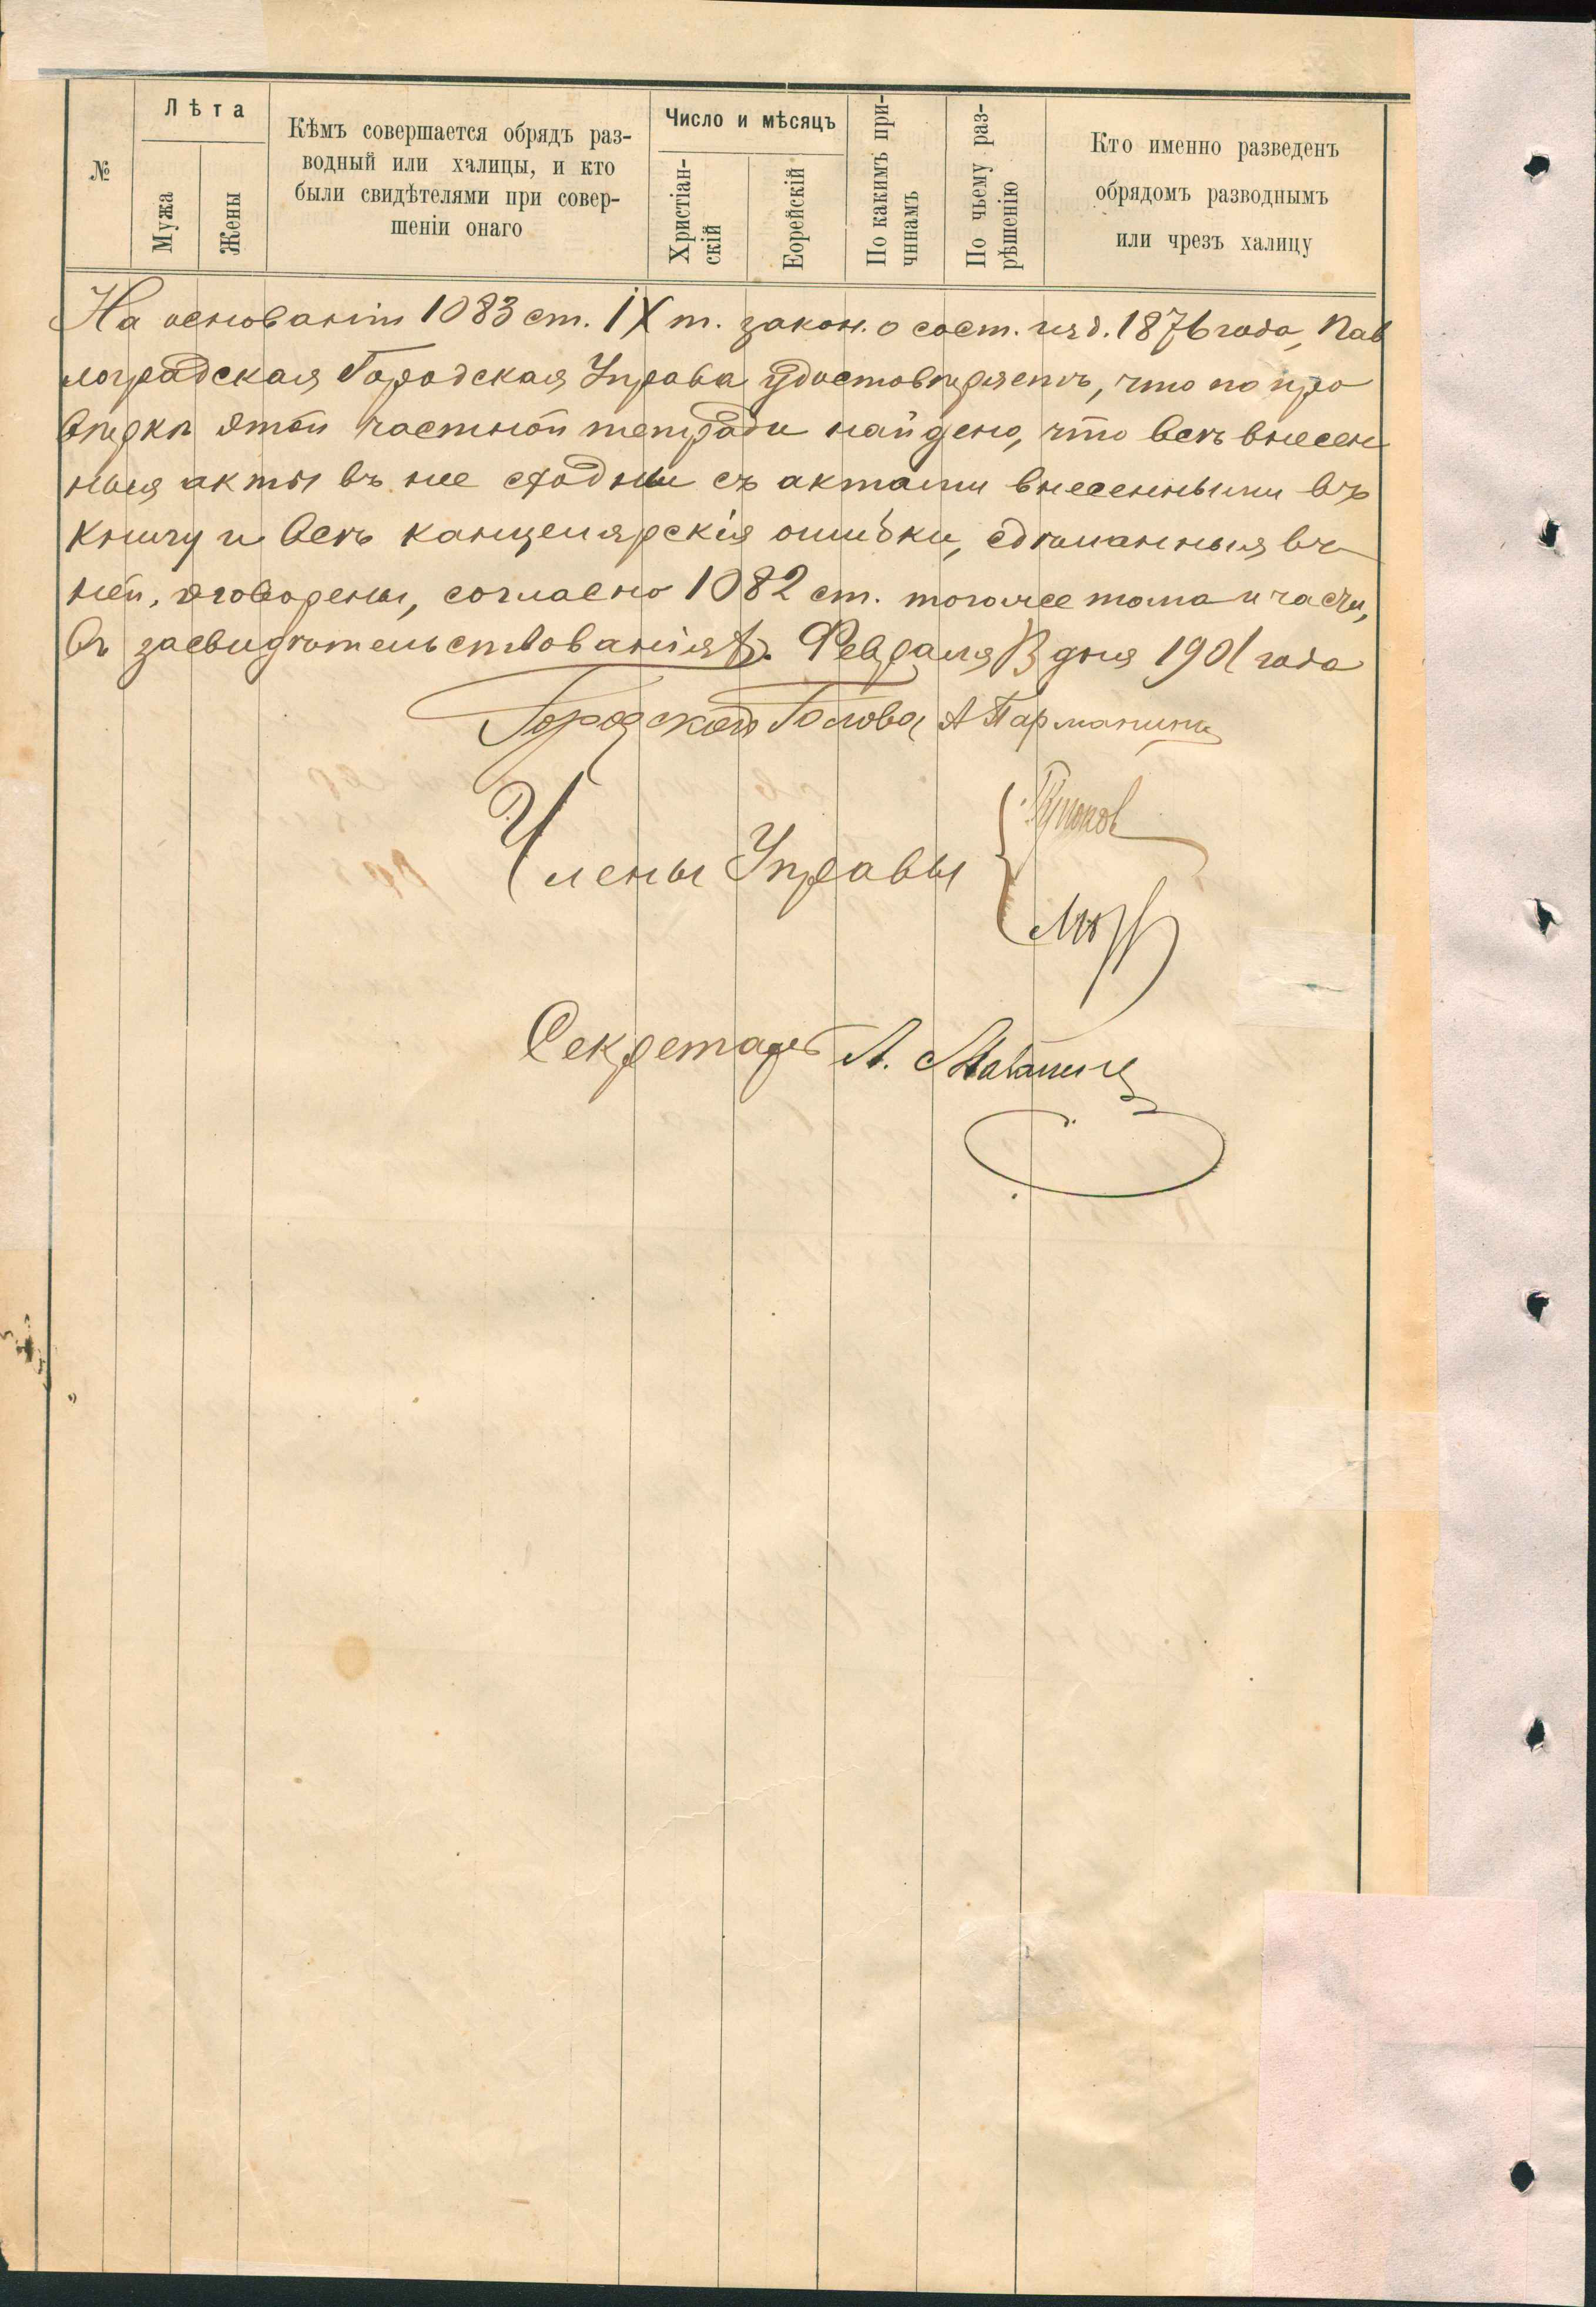 №
Лѣта
Мужа
Жены
Кѣмъ совершается обрядъ раз-
водный или халицы, и кто
были свидѣтелями при совер-
шеніи онаго
Число и мѣсяцъ
Христіан-
скій
Еорейскій
По какимъ при-
чинамъ
По чьему раз-
рѣшенію
Кто именно разведенъ
обрядомъ разводнымъ
или чрезъ халицу
На основаніи 1083 ст. IX т. закон. о сост. изд. 1876 года, Пав
лоградская Городская Управа удостовѣряетъ, что по про
вѣркѣ этой частной тетради найдено, что всѣ внесен
ныя акты въ нее сходны съ актами внесенными въ
книгу и всѣ канцелярскія ошибки, сдѣланныя въ
ней, оговорены, согласно 1082 ст. того же тома и части,
въ засвидѣтельствованія. Февраля дня 1901 года
Городской Голова А
Члены Управы
Секретарь А.